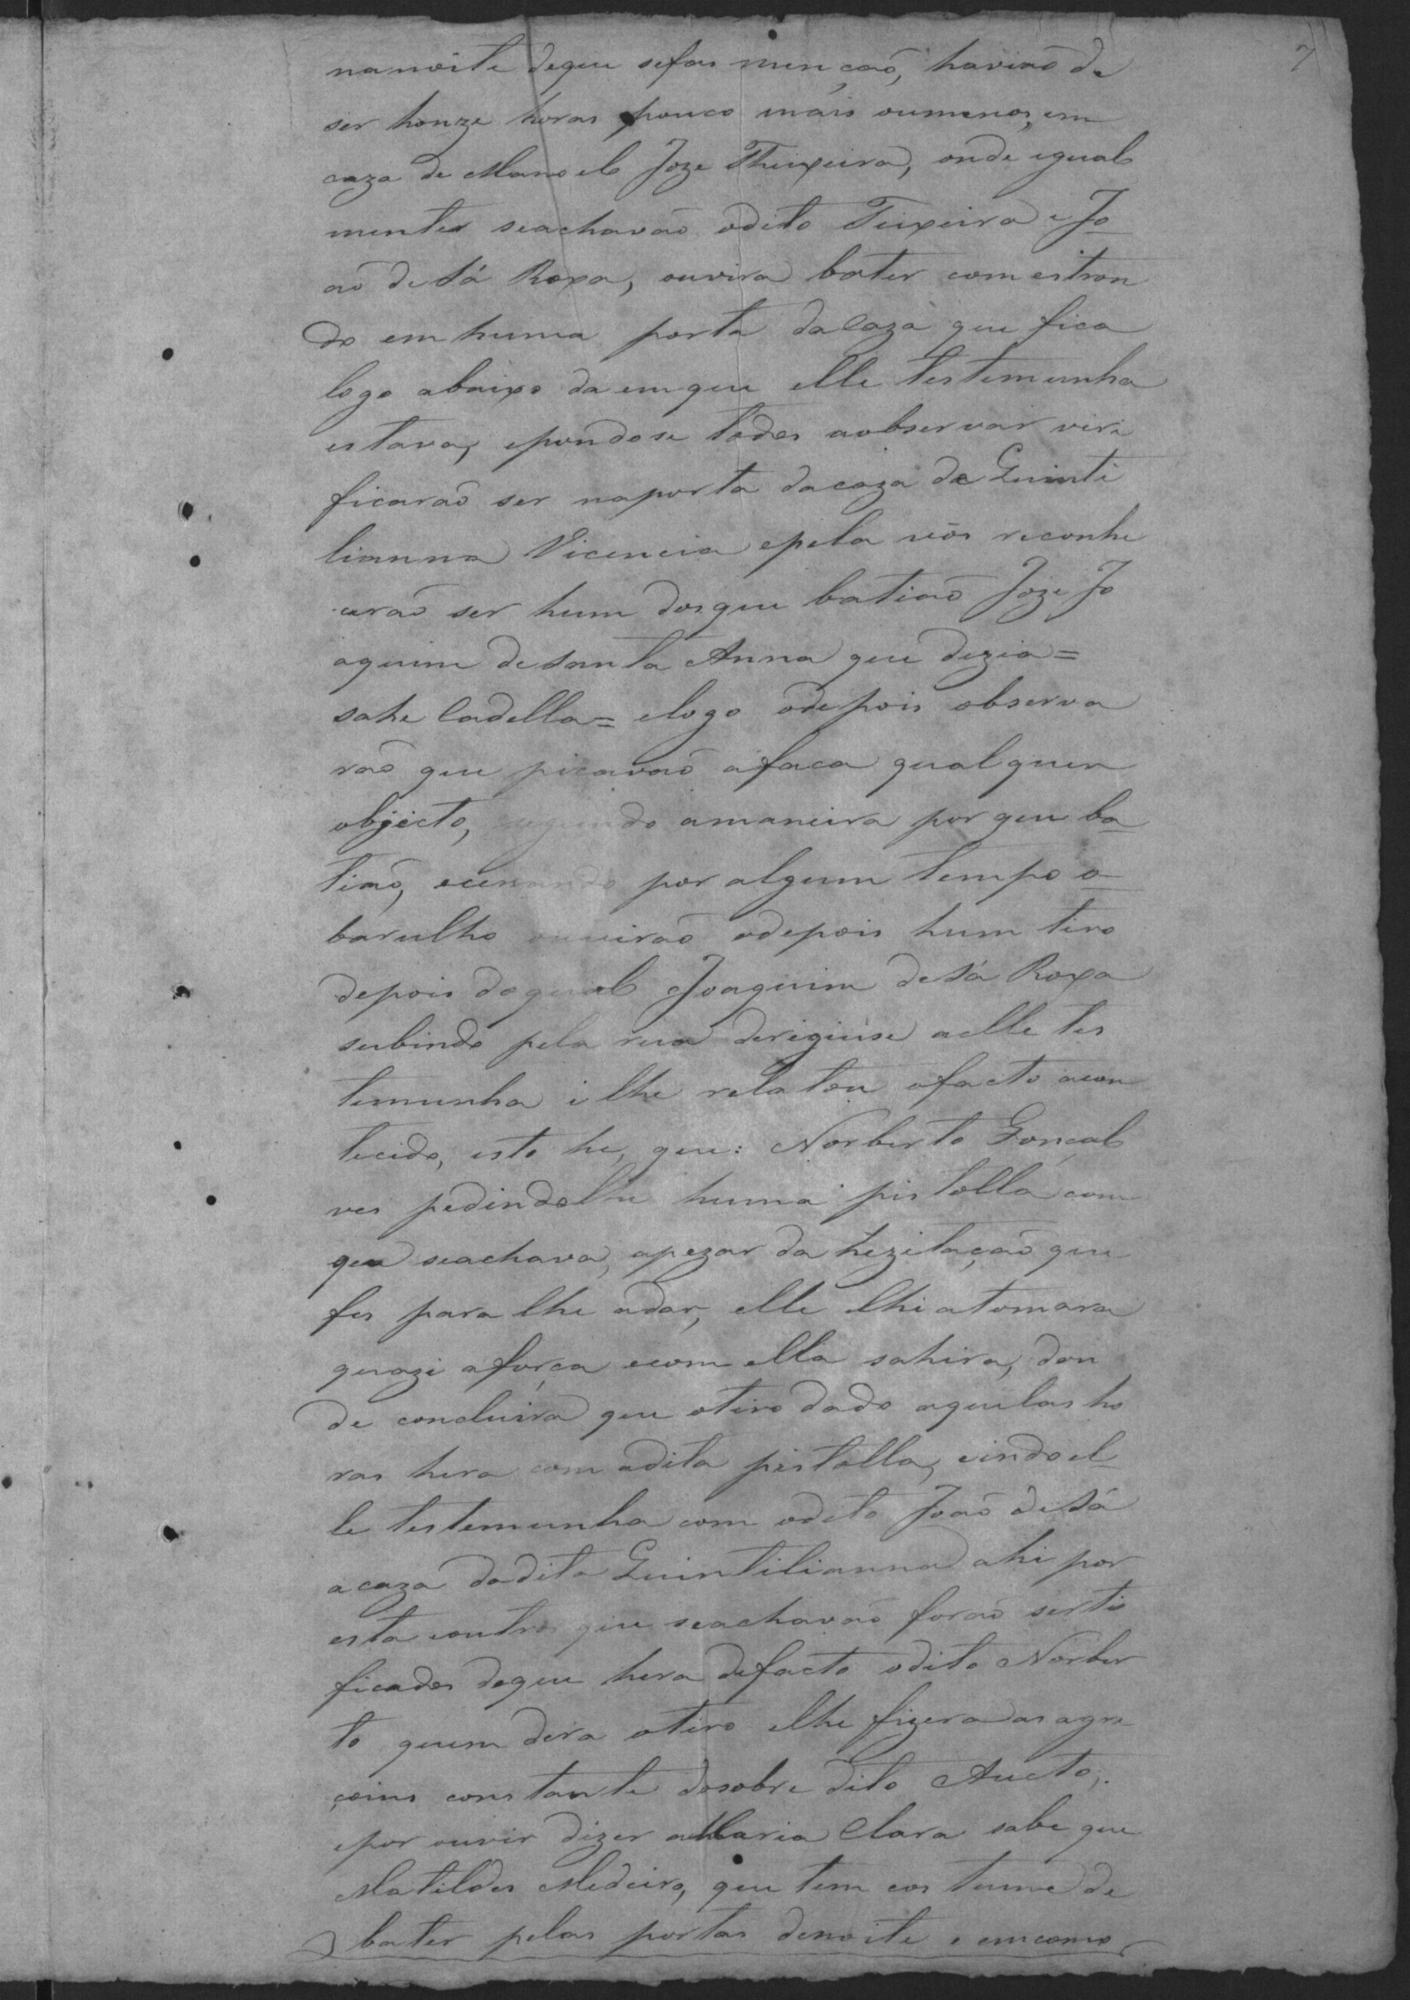 7
na noite deque sefas menção, havião de
ser honze horas pouco mais oumenos, em
caza de Manoel Joze Theixeira, onde igual
mente seachavão odito Teixeira e Jo
aõ de Sá Roxa, ouvira bater com estron
do em huma porta dacaza que fica
logo abaixo da emque elle testemunha
estava, epondose todos aobservar viri
ficarão ser naporta dacaza de Quinti
lianna Vicencia epela vós reconhe
cerão ser hum dosque batião Joze Jo
aquim deSanta Anna que dezia =
sahe Cadella = elogo odepois observa
rão que picavão afaca qualquer
objecto, segundo amaneira porque ba
tião, ecessando por algum tempo o
barulho ouvirão odepois hum tiro
depois doqual Joaquim deSá Roxa
subindo pela rua derigiuse aelle tes
temunha e lhe relatou ofacto acon
tecido, isto he, que: Norberto Gonçal
ves pedindolhe huma pistolla com
que seachava, apezar da hezitação que
fes para lhe adar, elle lhiatomara
quazi aforça ecom ella sahira, don
de concluira que otiro dado aquelas ho
ras hera com adita pistolla, eindo el
le testemunha com odito João deSá
acaza dadita Quintilianna ahi por
esta eoutros que seachavão forão serti
ficados deque hera defacto odito Norber
to quem dera otiro elhe fizera as agre
çoins constante dosobre dito Aucto,
epor ouvir dizer aMaria Clara sabe que
Matildes Medeiro, que tem costume de
bater pelas portas denoite e emcomo